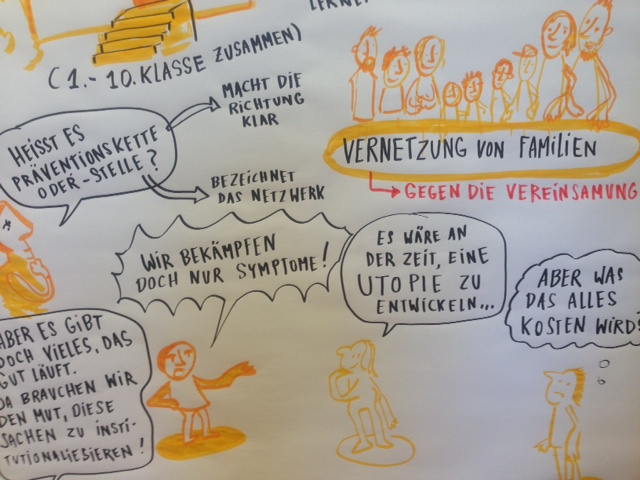 LERNE
(1.-10. KLASSE ZUSAMMEN)
HEISST ES
PRÄVENTIONSKETTE
ODER-STELLE?
MACHT DIE
RICHTUNG
KLAR
BEZEICHNET
DAS NETZWERK
VERNETZUNG VON FAMILIEN
GEGEN DIE VEREINSAMUNG
WIR BEKÄMPFEN
DOCH NUR SYMPTOME!
ES WÄRE AN
DER ZEIT, EINE
UTOPIE ZU
ENTWICKELN...
ABER WAS
DAS ALLES
KOSTEN WIRD?
ABER ES GIBT
DOCH VIELES, DAS
GUT LÄUFT.
DA BRAUCHEN WIR
DEN MUT, DIESE
SACHEN ZU INSTI-
TUTIONALIEBIEREN!